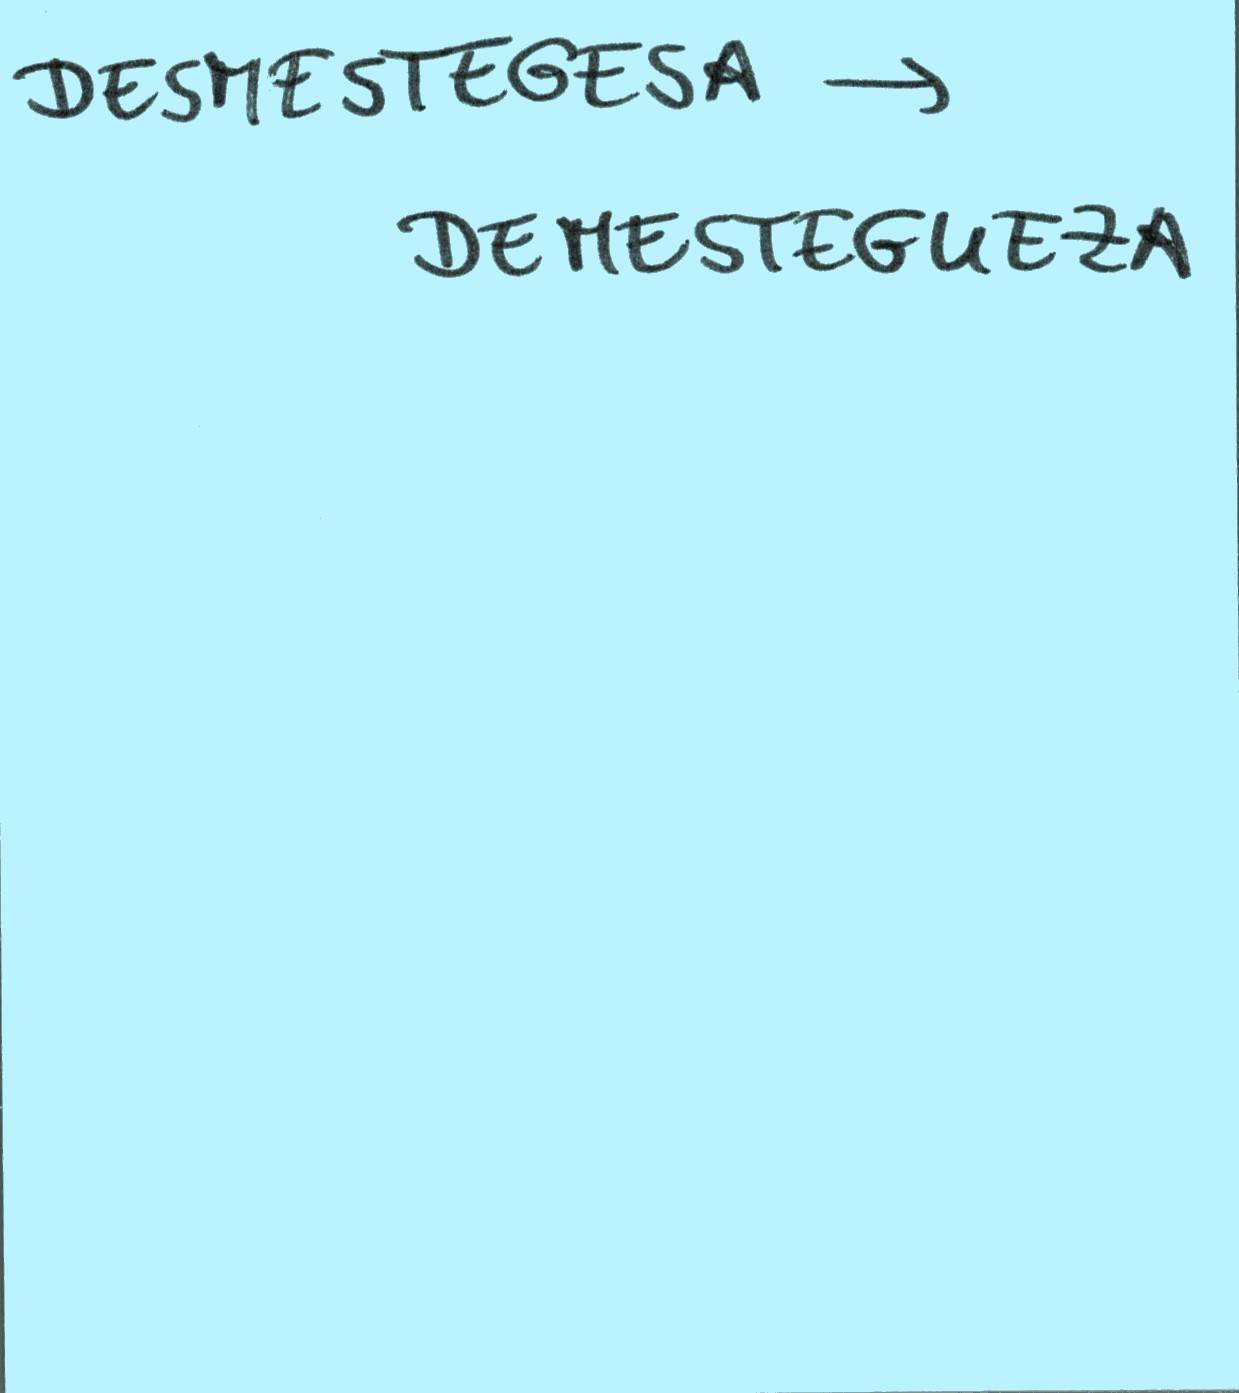 DESMESTEGESA →
DEMESTEGUEZA